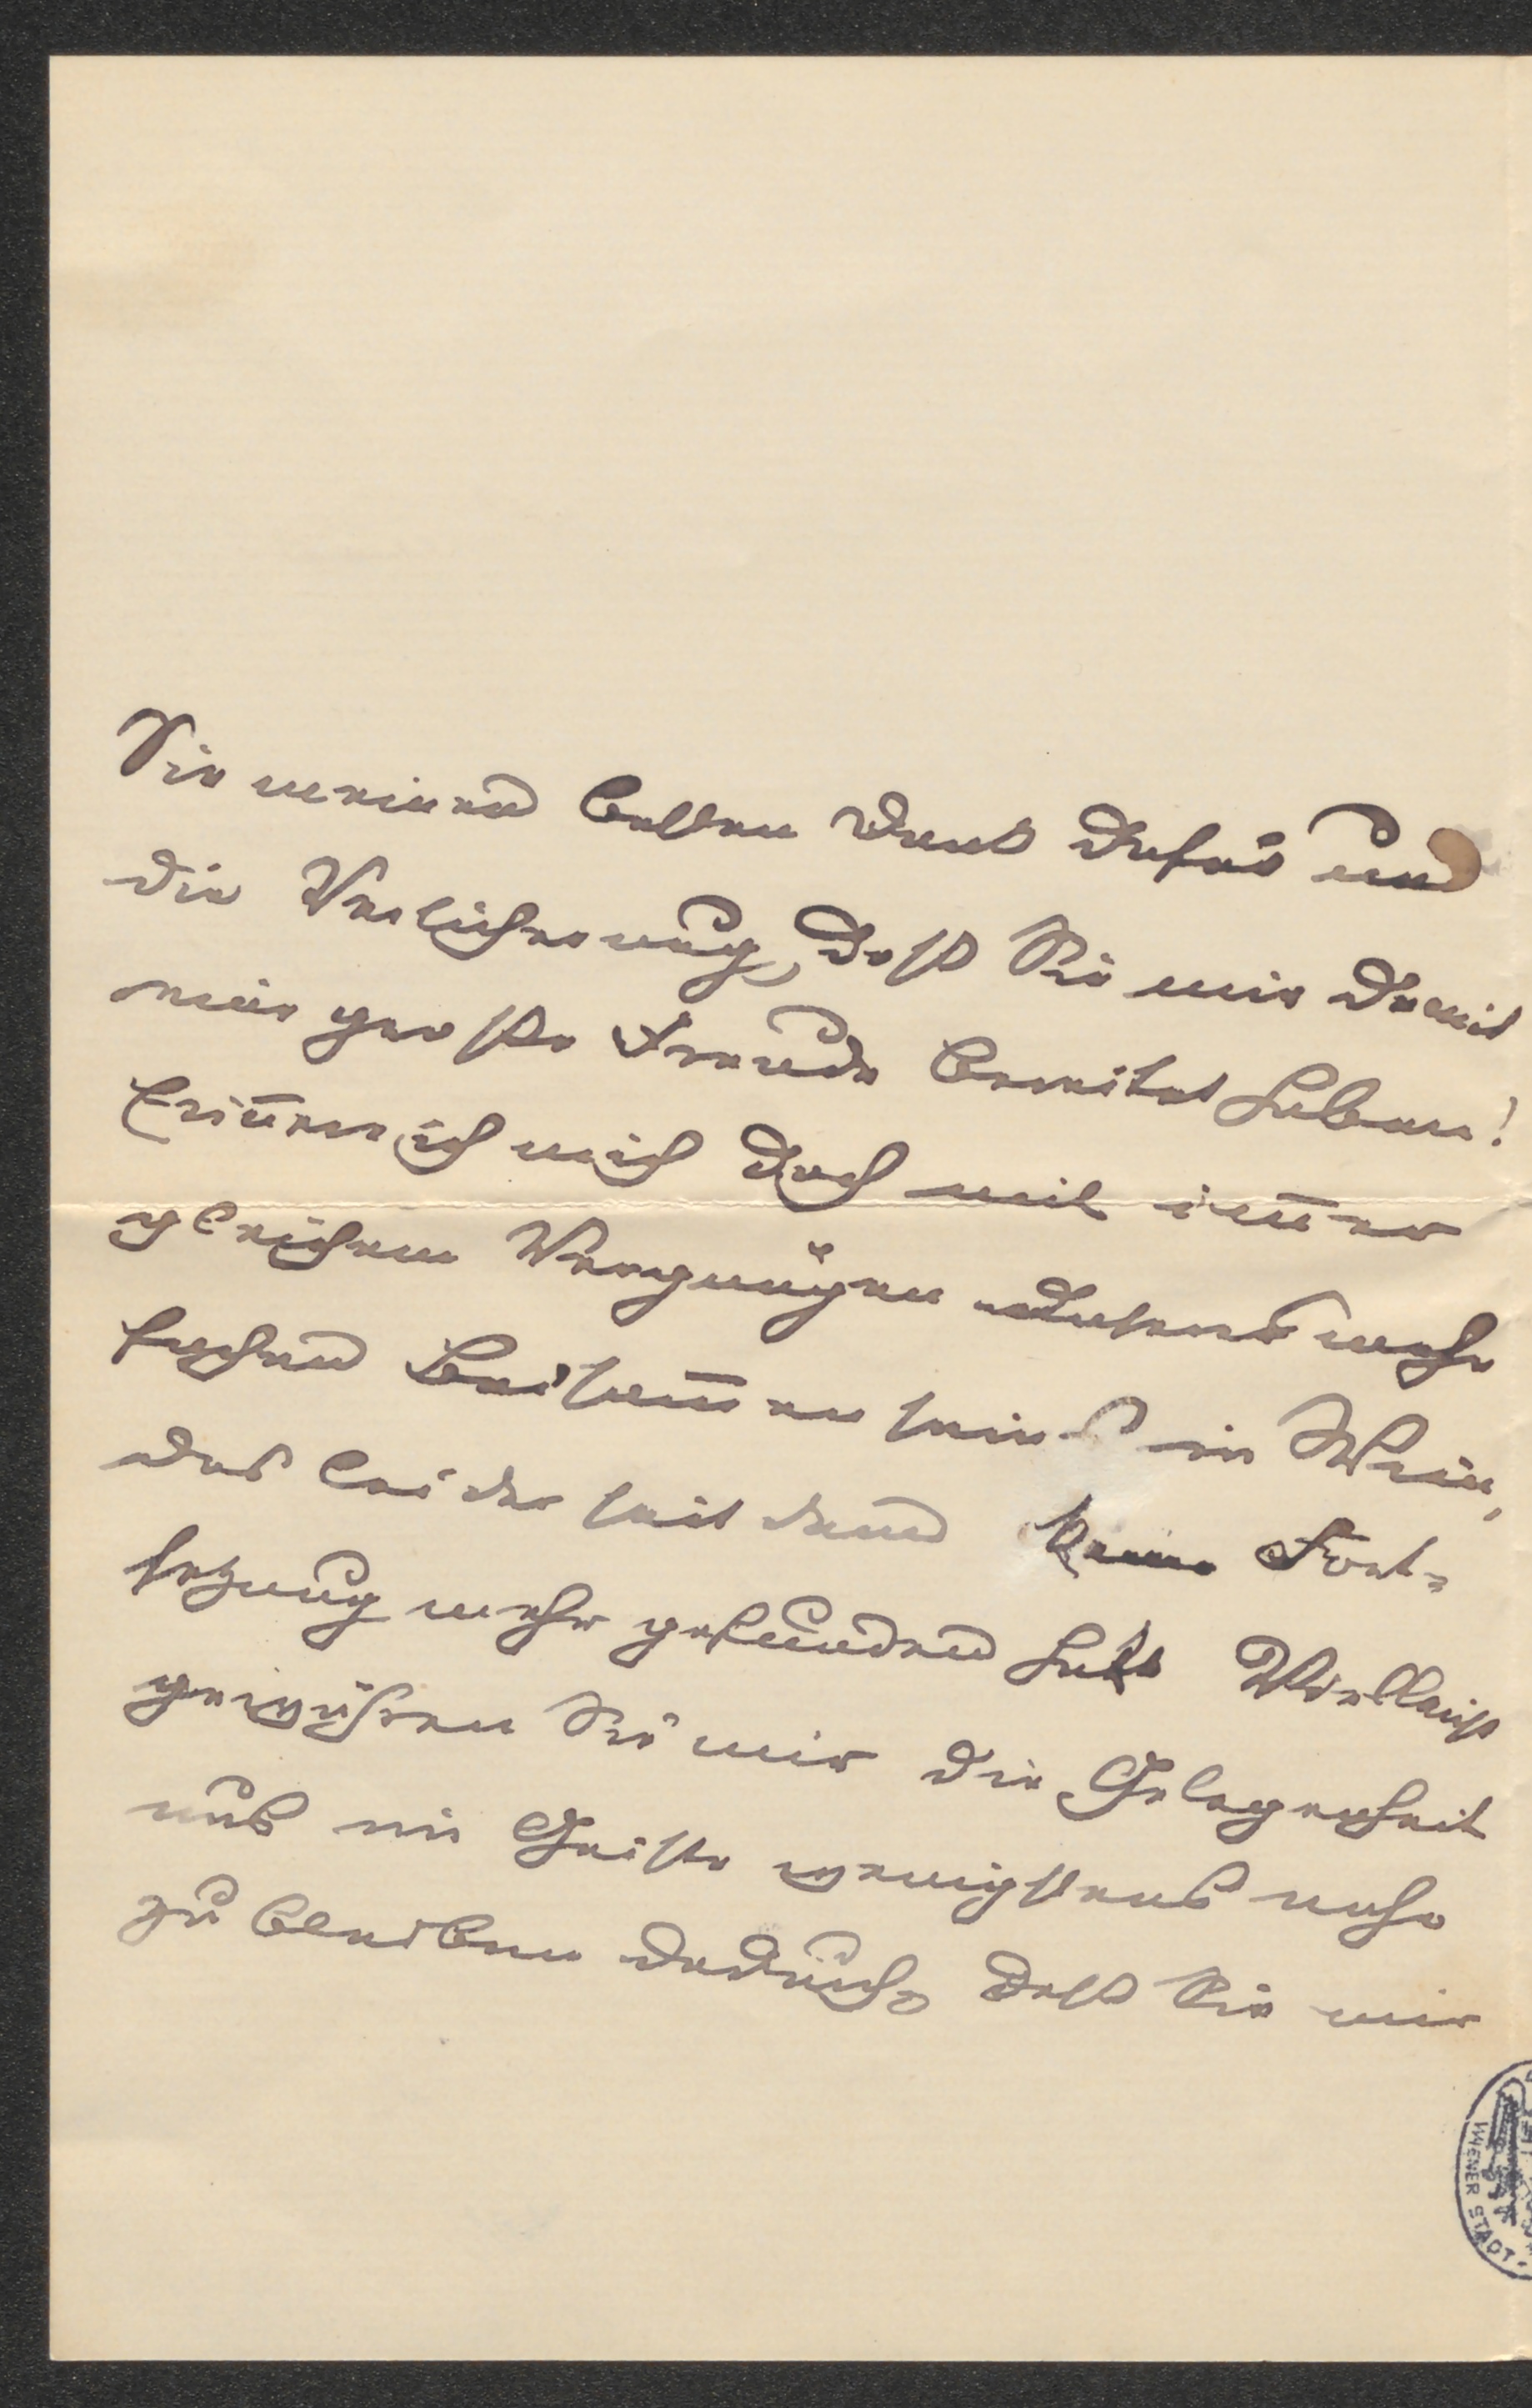 Sie meinen besten Dank dafür und
die Versicherung, daß Sie mir damit
eine große Freude bereitet haben!
Erinnere ich mich doch mit immer
gleichem Vergnügen unseres mehr
fachen Beisammenseins in Wien,
das leider seitdem keine Fort-
setzung mehr gefunden hat. Vielleicht
gewähren Sie mir die Gelegenheit
uns im Geiste wenigstens nahe
zu bleiben dadurch, daß Sie mir
WIENER STADT-